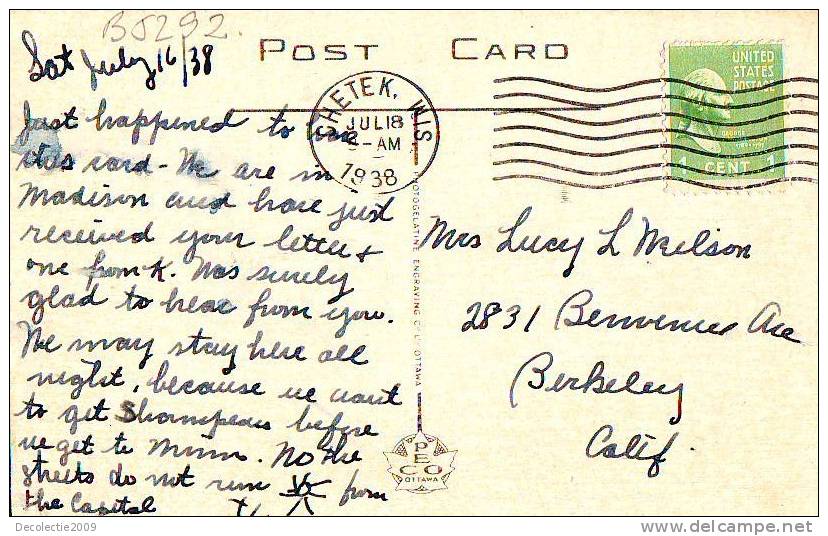 BJ292.
POST CARD
Sat July 16/38
Just happened to have
this card - We are in
Madison and have just
received your letter +
one from K. Was surely
glad to hear from you.
We may stay here all
night, because we want
to get Shampeau before
we get to Minn. No the
streets do not run from
the Capital
CHETEK, WIS.
JUL 18
-AM
1938
UNITED
STATES
POSTAGE
GEORGE
1 CENT 1
Mrs Lucy L Neilson
2831 Benvenue Ave
Berkeley
Calif.
PHOTOGELATINE ENGRAVING CO. L. OTTAWA
PECO
OTTAWA
Decolectie2009
delcampe.net